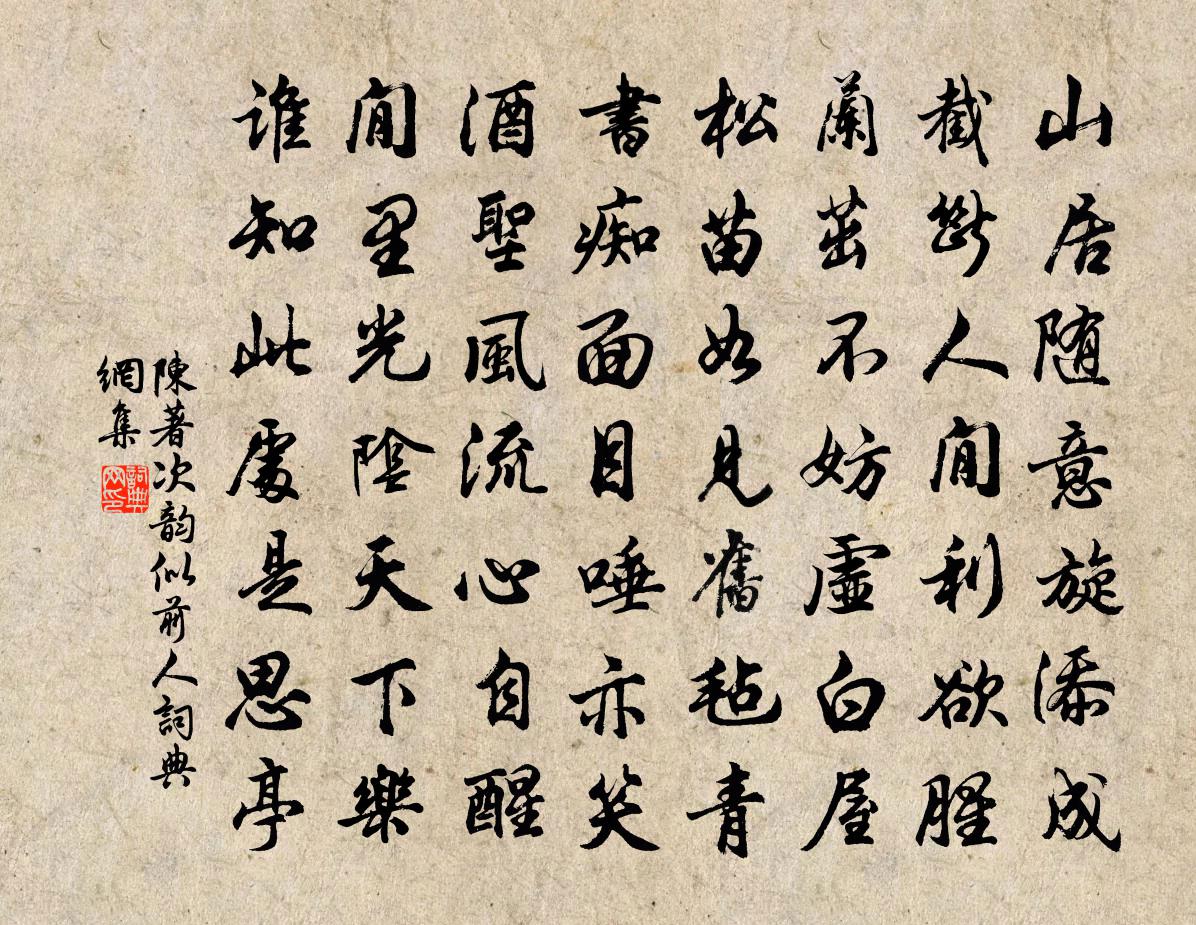 山居随意旋添成
截斷人間利欲腥
蘭茁不妨虛白屋
松苗如見舊毡青
書痴面目唾亦笑
酒聖風流心自醒
閒里光陰天下樂
誰知此處是思亭
陳著次韵似前人詞典
網集
詞典網印